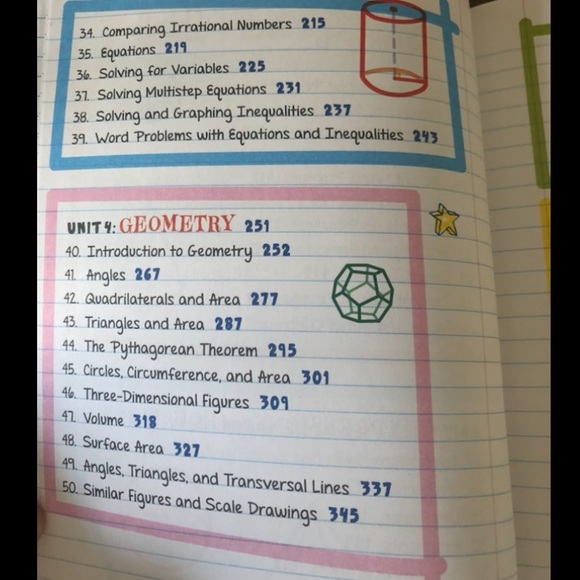 34. Comparing Irrational Numbers 215
35. Equations 219
36. Solving for Variables 225
37. Solving Multistep Equations 231
38. Solving and Graphing Inequalities 237
39. Word Problems with Equations and Inequalities 243
UNIT 4: GEOMETRY 251
40. Introduction to Geometry 252
41. Angles 267
42. Quadrilaterals and Area 277
43. Triangles and Area 287
44. The Pythagorean Theorem 295
45. Circles, Circumference, and Area 301
46. Three-Dimensional Figures 309
47. Volume 318
48. Surface Area 327
49. Angles, Triangles, and Transversal Lines 337
50. Similar Figures and Scale Drawings 345